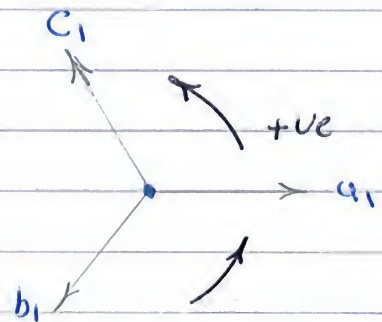 C1
+ve
a1
b1